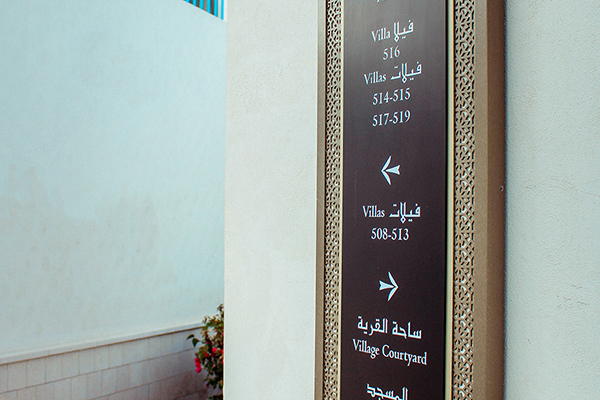 Villa فيلا
516
Villas فيلات
514-515
517-519
Villas فيلات
508-513
ساحة القرية
Village Courtyard
المسجد